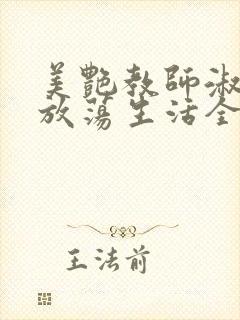 美艷教師淑
放蕩生活全
王法前